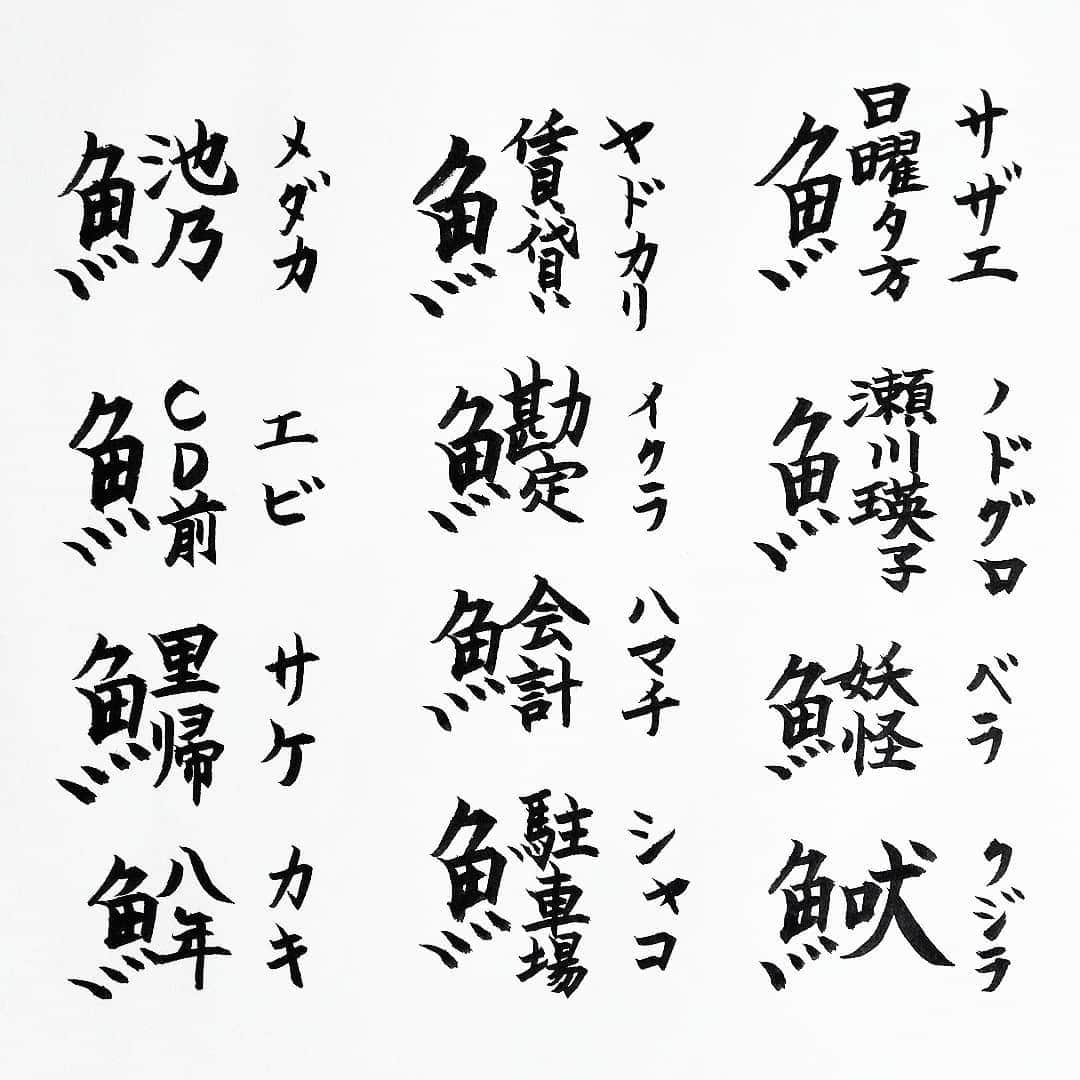 サザエ
魚日曜夕方
ノドグロ
魚瀬川瑛子
ベラ
魚妖怪
クジラ
魚吠
ヤドカリ
魚賃貸
イクラ
魚勘定
ハマチ
魚会計
シャコ
魚駐車場
メダカ
魚池乃
エビ
魚CD前
サケ
魚里帰
カキ
魚八年